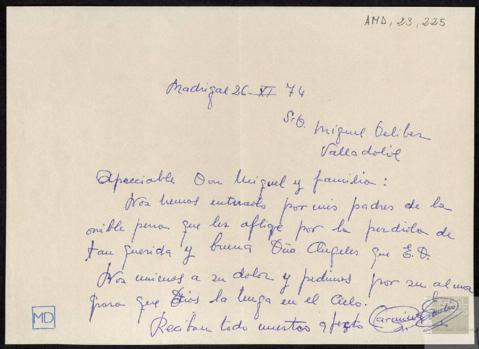 AMD, 23, 225
Madrigal 26-XI 74
Sr D. Miguel Delibes
Valladolid
Apreciable Don Miguel y familia:
Nos hemos enterado por mis padres de la
horrible pena que les aflige por la perdida de
tan querida y buena Dña Angeles que E.D.
Nos unimos a su dolor y pedimos por su alma
para que Dios la tenga en el Cielo.
Reciban todo nuestro afecto
MD